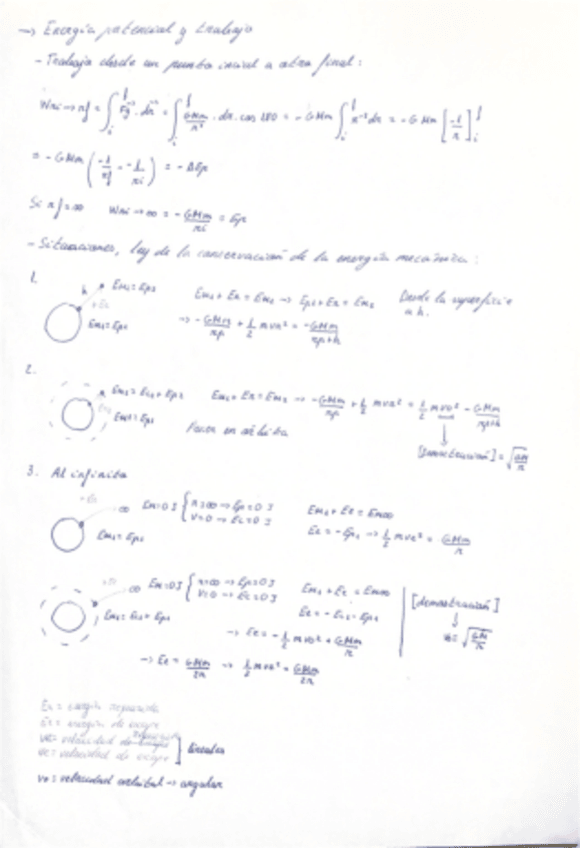 → Energía potencial y trabajo
- Trabajo desde un punto inicial a otro final:
W ri→rf = ∫ᵢᶠ Fg · dr = ∫ᵢᶠ GMm/r² · dr · cos 180 = - GMm ∫ᵢᶠ r⁻² dr = - GMm [-1/r]ᵢᶠ
= - GMm (-1/rf - -1/ri) = - ΔEp
Si rf = ∞ W ri→∞ = - GMm/ri = Ep
- Situaciones, ley de la conservación de la energía mecánica:
1.
h Em₂ = Ep₂
Em₁ = Ep₁
Em₁ + Er = Em₂ → Ep₁ + Er = Em₂ Desde la superficie a h.
→ - GMm/rp + 1/2 mv² = - GMm/rp+h
2.
Em₂ = Ec₂ + Ep₂
Em₁ = Ep₁
Em₁ + Er = Em₂ → - GMm/rp + 1/2 mvr² = 1/2 mvo² - GMm/rp+h
Poner en órbita
[Demostración] = √GM/r
3. Al infinito
∞ Em = 0 J { r=∞ → Ep = 0 J
v=0 → Ec = 0 J
Em₁ = Ep₁
Em₁ + Ee = Em∞
Ee = - Ep₁ → 1/2 mve² = GMm/r
∞ Em = 0 J { r=∞ → Ep = 0 J
v=0 → Ec = 0 J
Em₁ = Ec₁ + Ep₁
Em₁ + Ee = Em∞
Ee = - Ec₁ - Ep₁
→ Ee = - 1/2 mvo² + GMm/r
[demostración]
vo = √GM/r
→ Ee = GMm/2r → 1/2 mve² = GMm/2r
Er = energía
Ee = energía de escape
velocidad de
ve = velocidad de escape
] lineales
vo = velocidad orbital → angular